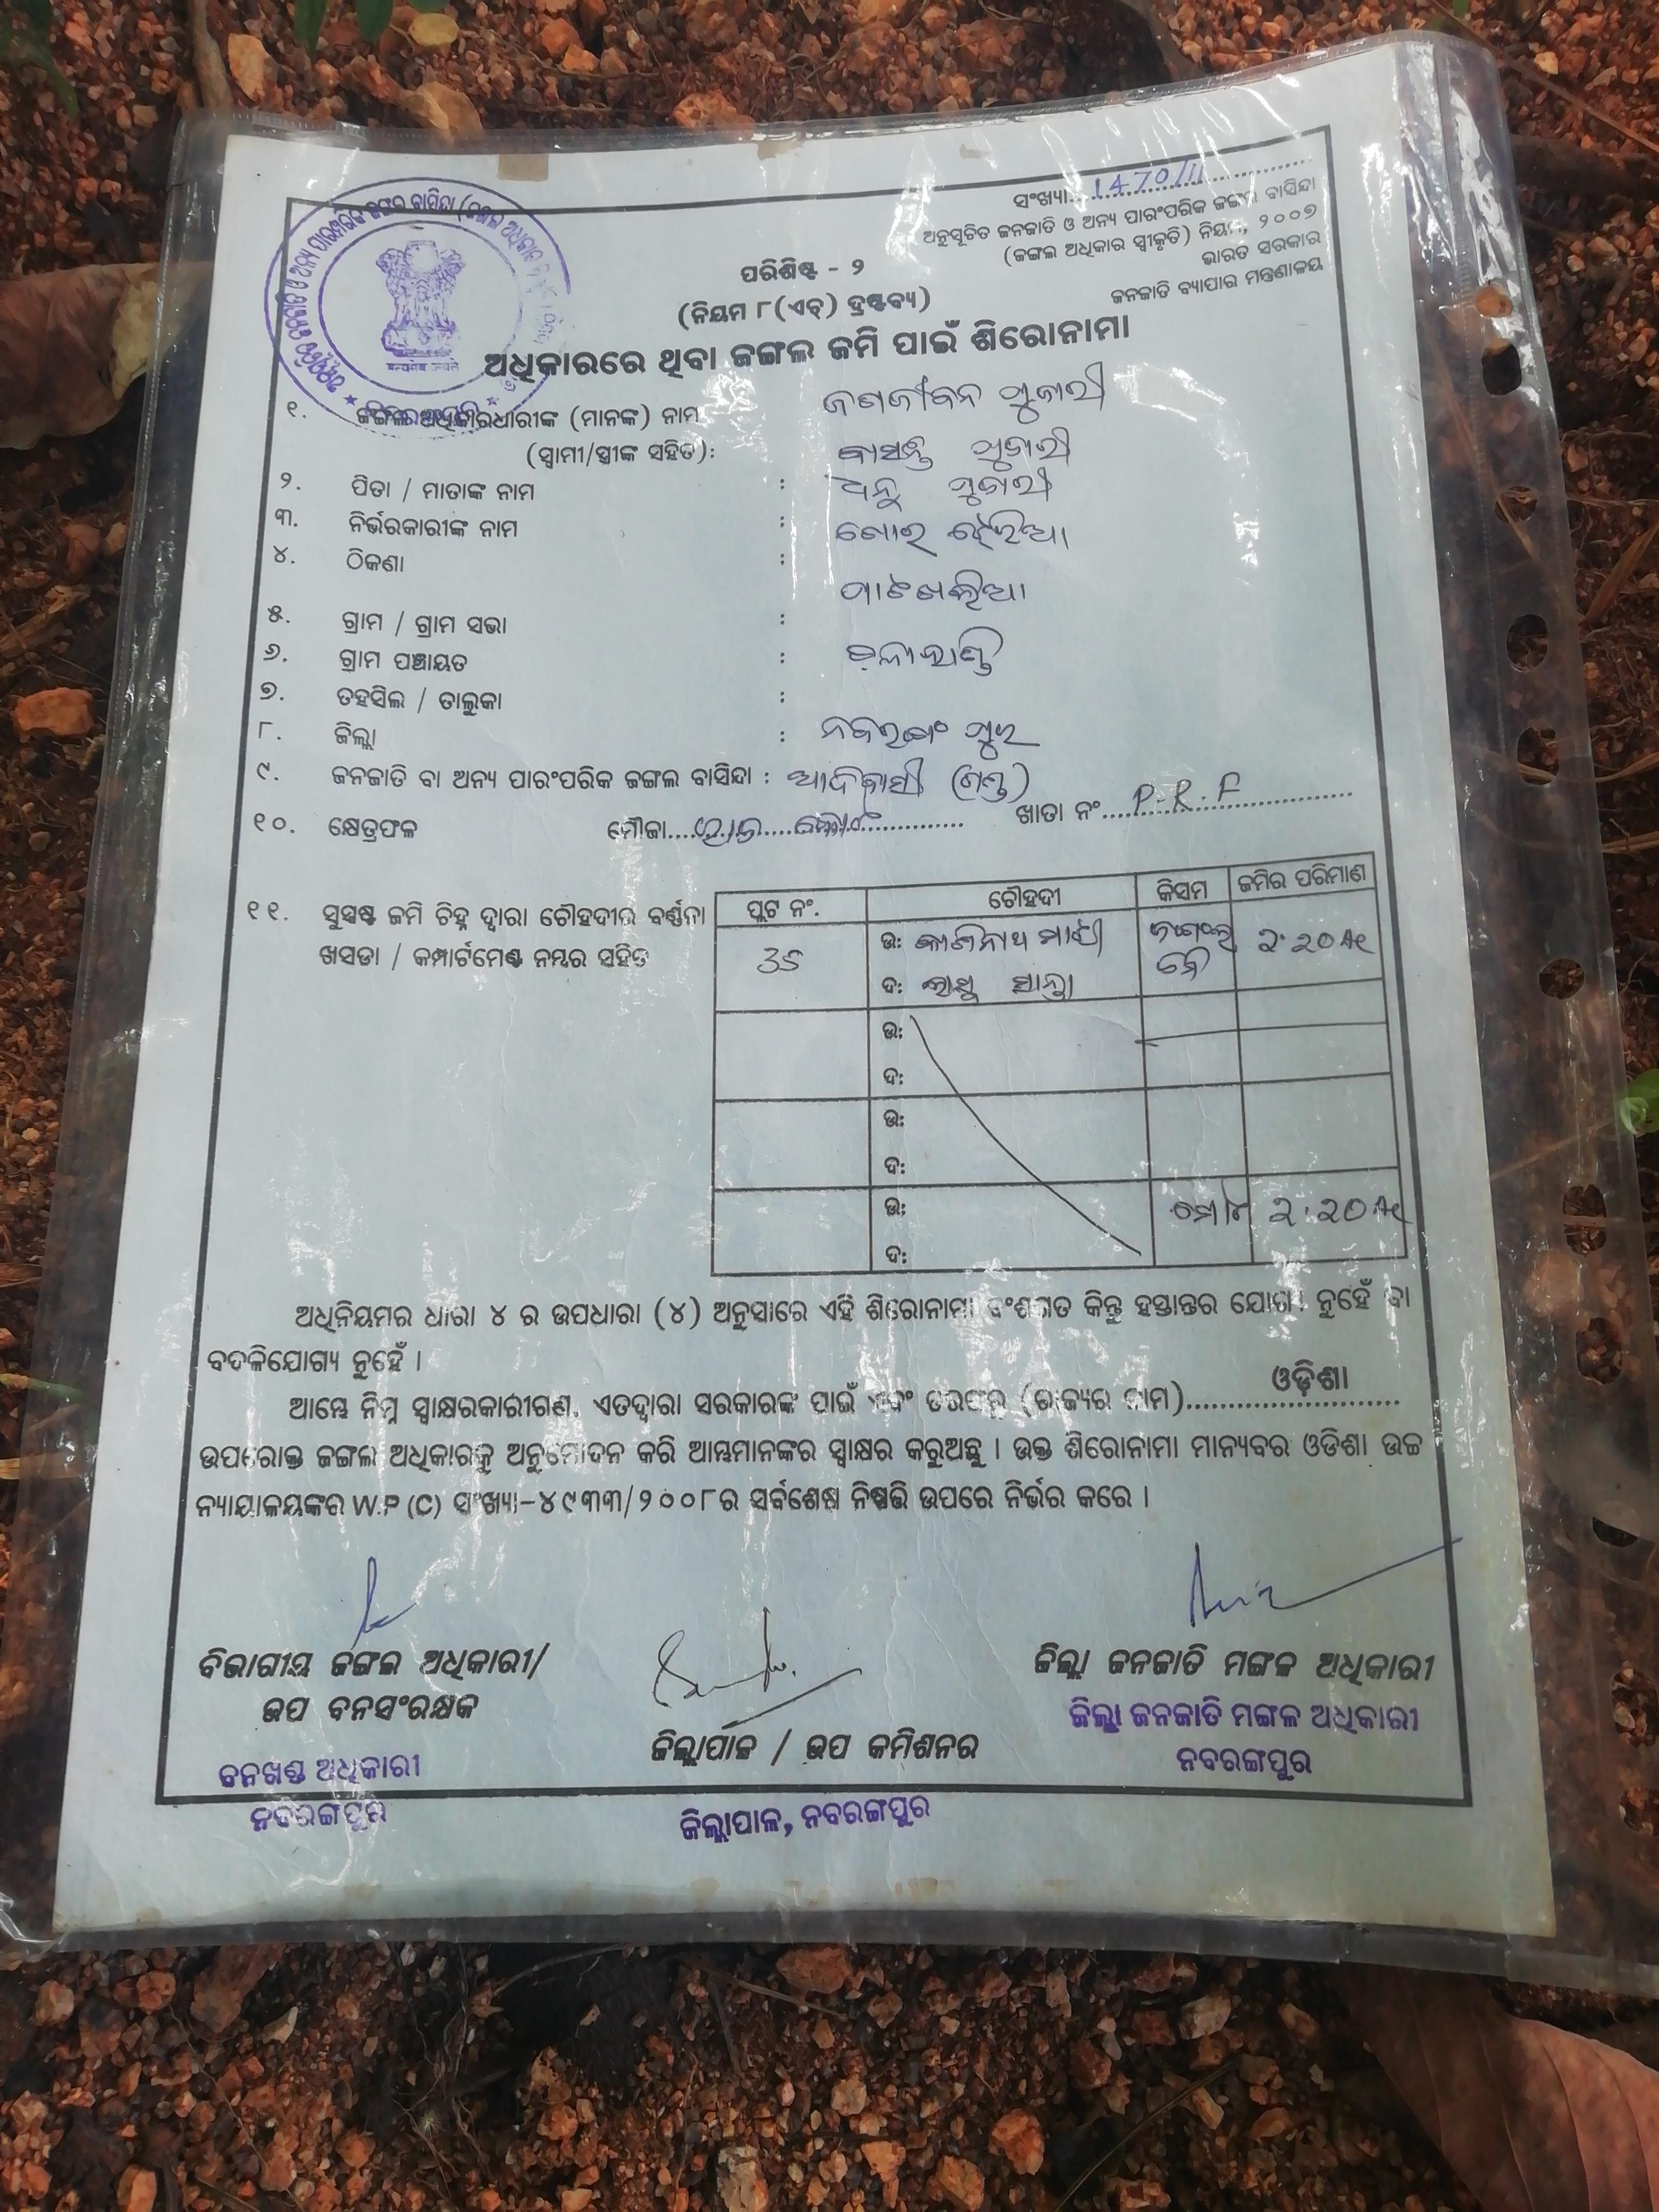 ସଂଖ୍ୟା.....1470/11
ଅନୁସୂଚିତ ଜନଜାତି ଓ ଅନ୍ୟ ପାରଂପରିକ ଜଙ୍ଗଲ ବାସିନ୍ଦା
(ଜଙ୍ଗଲ ଅଧିକାର ସ୍ୱୀକୃତି) ନିୟମ, ୨୦୦୭
ଭାରତ ସରକାର
ଜନଜାତି ବ୍ୟାପାର ମନ୍ତ୍ରଣାଳୟ
ପରିଶିଷ୍ଟ - ୨
(ନିୟମ ୮(ଏଚ୍) ଦ୍ରଷ୍ଟବ୍ୟ)
ଅଧିକାରରେ ଥିବା ଜଙ୍ଗଲ ଜମି ପାଇଁ ଶିରୋନାମା
୧. ଜଙ୍ଗଲ ଅଧିକାରଧାରୀଙ୍କ (ମାନଙ୍କ) ନାମ ଜଗଜୀବନ ପୁଜାରୀ
(ସ୍ୱାମୀ/ସ୍ତ୍ରୀଙ୍କ ସହିତ): ବାସନ୍ତୀ ପୁଜାରୀ
୨. ପିତା / ମାତାଙ୍କ ନାମ : ଧନୁ ପୁଜାରୀ
୩. ନିର୍ଭରକାରୀଙ୍କ ନାମ :
୪. ଠିକଣା :
୫. ଗ୍ରାମ / ଗ୍ରାମ ସଭା :
୬. ଗ୍ରାମ ପଞ୍ଚାୟତ :
୭. ତହସିଲ / ତାଲୁକା :
୮. ଜିଲ୍ଲା : ନବରଙ୍ଗପୁର
୯. ଜନଜାତି ବା ଅନ୍ୟ ପାରଂପରିକ ଜଙ୍ଗଲ ବାସିନ୍ଦା : ଆଦିବାସୀ (ଗଣ୍ଡ)
୧୦. କ୍ଷେତ୍ରଫଳ ମୌଜା..... ଖାତା ନଂ....P.R.F
୧୧. ସୁସ୍ପଷ୍ଟ ଜମି ଚିହ୍ନ ଦ୍ୱାରା ଚୌହଦୀର ବର୍ଣ୍ଣନା
ଖସଡା / କମ୍ପାର୍ଟମେଣ୍ଟ ନମ୍ବର ସହିତ
ପ୍ଲଟ ନଂ. ଚୌହଦୀ କିସମ ଜମିର ପରିମାଣ
35 ଉ: କାଶିନାଥ ମାଝୀ 2.20 Ac
ଦ: ସାନ୍ତା
ଉ:
ଦ:
ଉ:
ଦ:
ଉ: ମୋଟ 2.20 Ac
ଦ:
ଅଧିନିୟମର ଧାରା ୪ ର ଉପଧାରା (୪) ଅନୁସାରେ ଏହି ଶିରୋନାମା ବଂଶଗତ କିନ୍ତୁ ହସ୍ତାନ୍ତର ଯୋଗ୍ୟ ନୁହେଁ ବା
ବଦଳିଯୋଗ୍ୟ ନୁହେଁ ।
ଆମ୍ଭେ ନିମ୍ନ ସ୍ୱାକ୍ଷରକାରୀଗଣ, ଏତଦ୍ୱାରା ସରକାରଙ୍କ ପାଇଁ ଏବଂ ତରଫରୁ (ରାଜ୍ୟର ନାମ).....ଓଡ଼ିଶା
ଉପରୋକ୍ତ ଜଙ୍ଗଲ ଅଧିକାରକୁ ଅନୁମୋଦନ କରି ଆମ୍ଭମାନଙ୍କର ସ୍ୱାକ୍ଷର କରୁଅଛୁ । ଉକ୍ତ ଶିରୋନାମା ମାନ୍ୟବର ଓଡିଶା ଉଚ୍ଚ
ନ୍ୟାୟାଳୟଙ୍କର W.P (C) ସଂଖ୍ୟା-୪୯୩୩/୨୦୦୮ର ସର୍ବଶେଷ ନିଷ୍ପତ୍ତି ଉପରେ ନିର୍ଭର କରେ ।
ବିଭାଗୀୟ ଜଙ୍ଗଲ ଅଧିକାରୀ/
ଉପ ବନସଂରକ୍ଷକ
ବନଖଣ୍ଡ ଅଧିକାରୀ
ନବରଙ୍ଗପୁର
ଜିଲ୍ଲାପାଳ / ଉପ କମିଶନର
ଜିଲ୍ଲାପାଳ, ନବରଙ୍ଗପୁର
ଜିଲ୍ଲା ଜନଜାତି ମଙ୍ଗଳ ଅଧିକାରୀ
ଜିଲ୍ଲା ଜନଜାତି ମଙ୍ଗଳ ଅଧିକାରୀ
ନବରଙ୍ଗପୁର